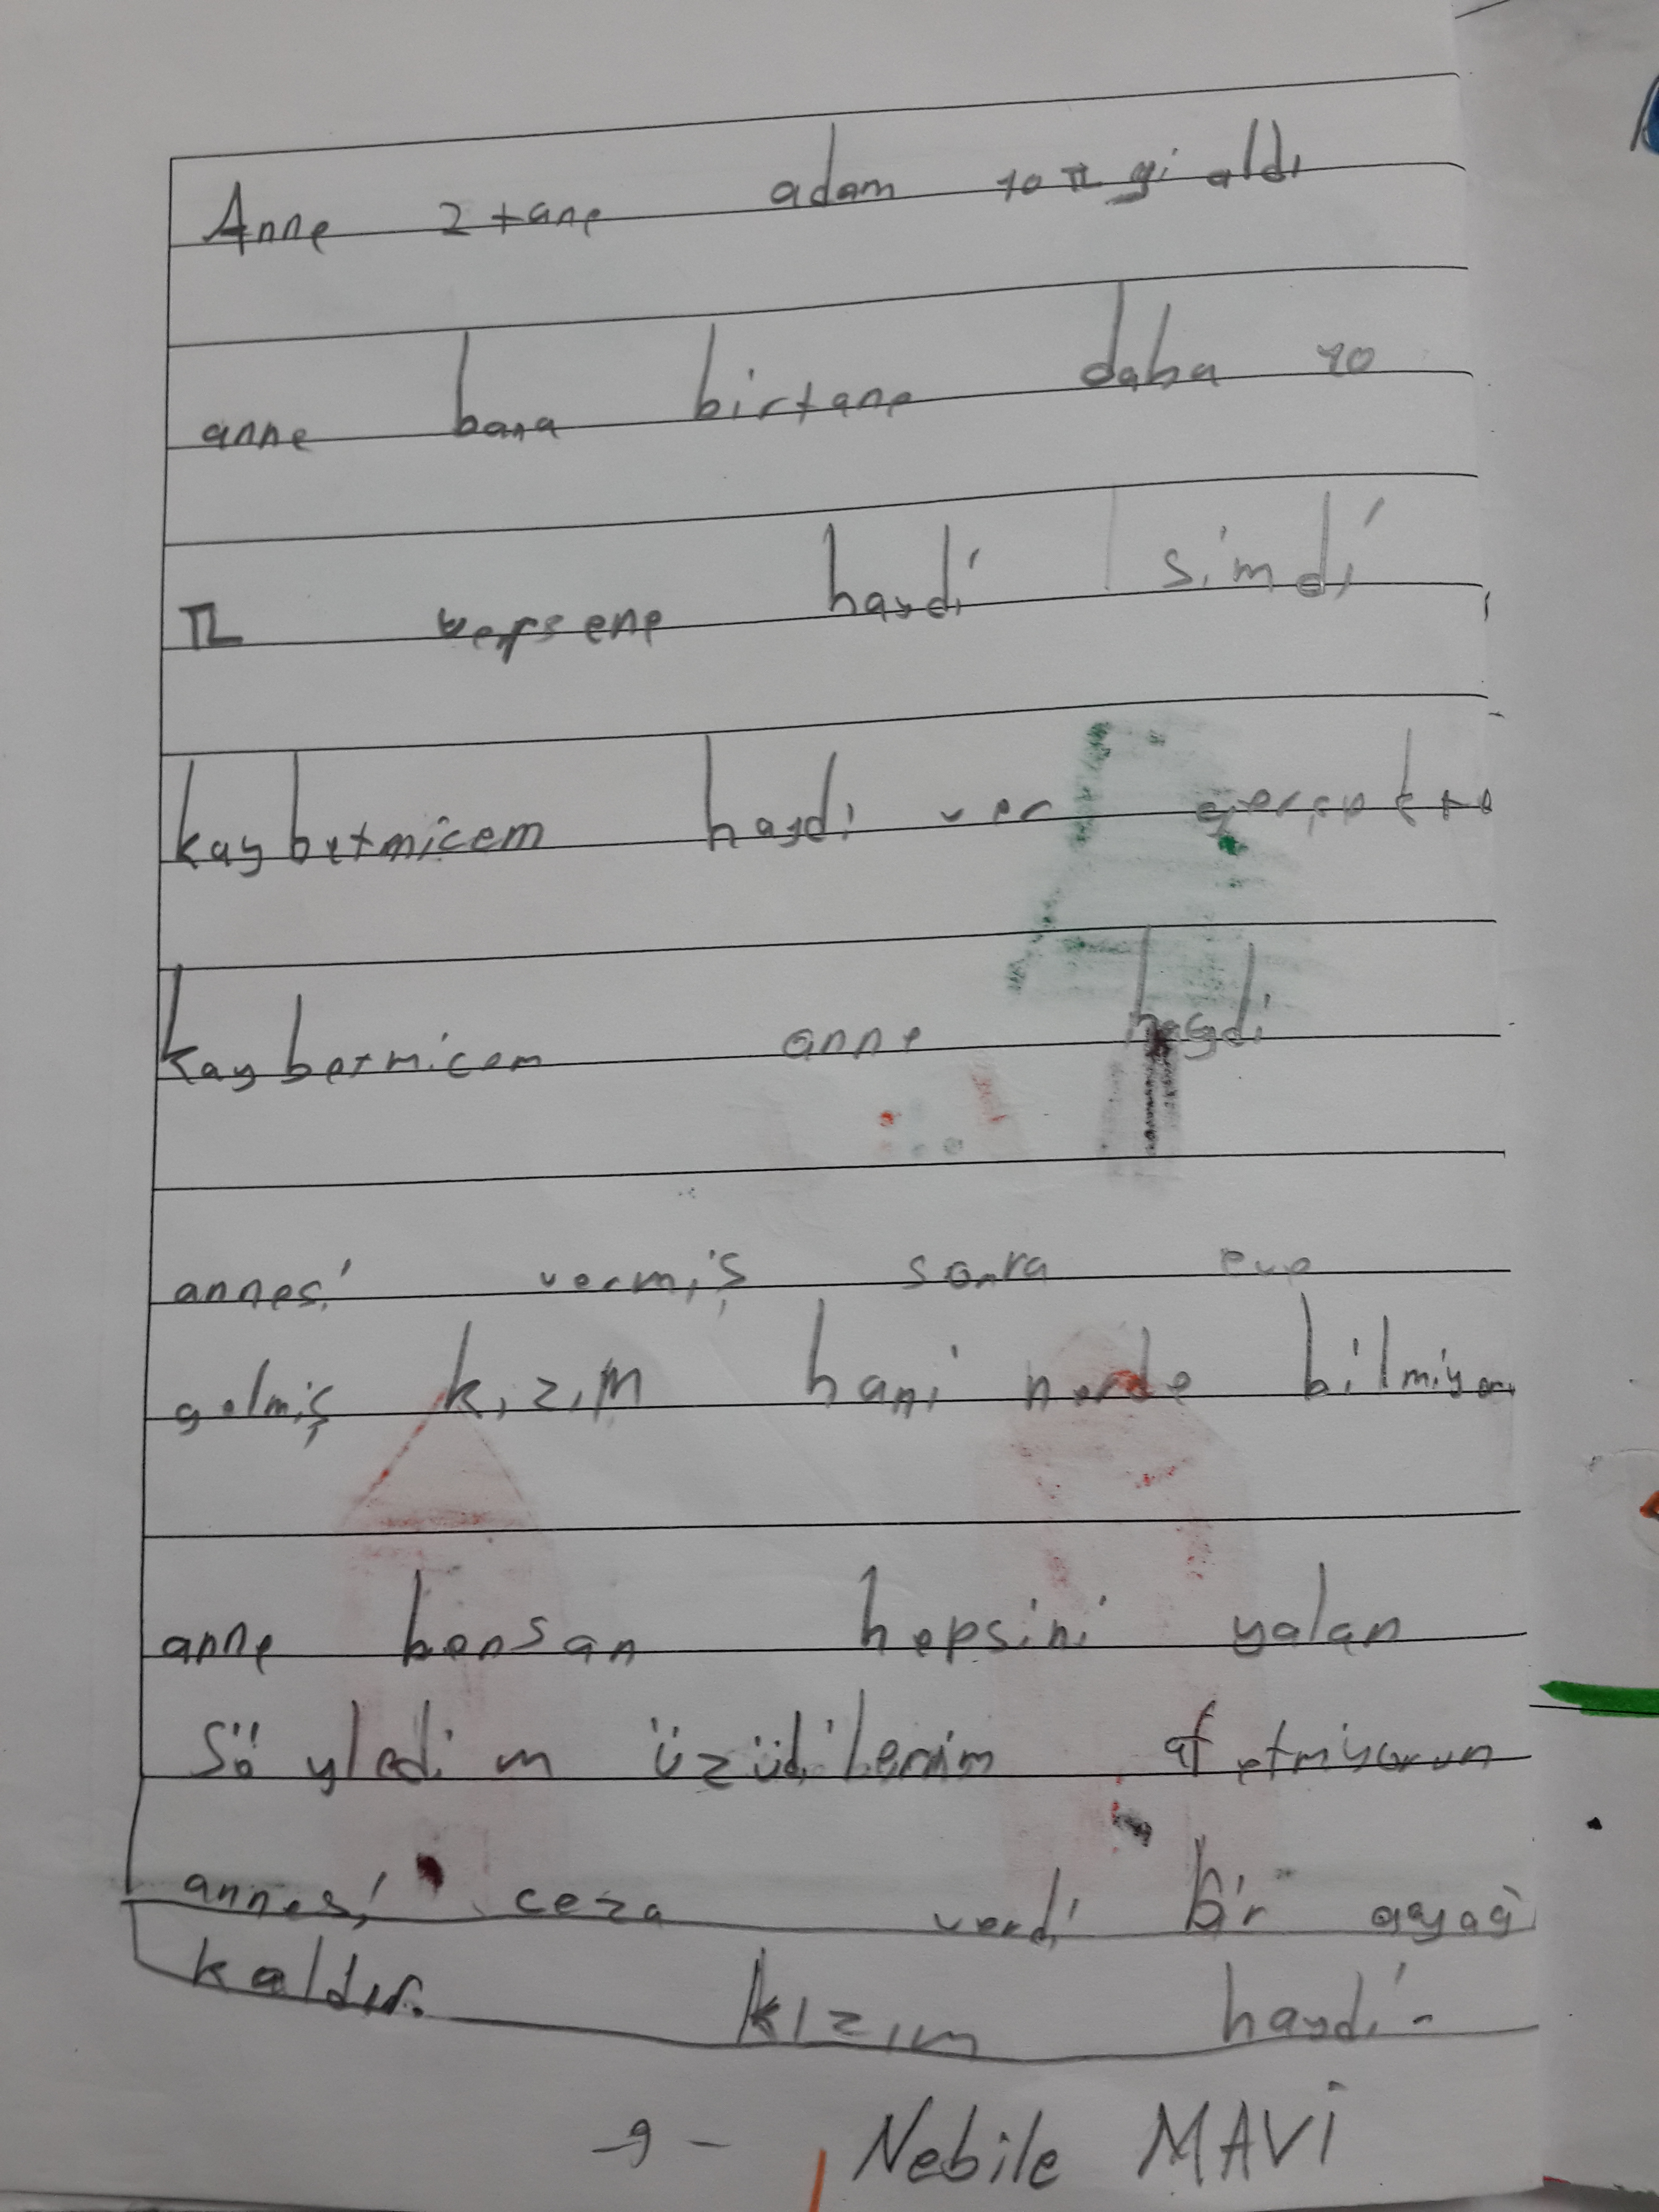 Anne 2 tane adam 10 TL yi aldı
anne bana birtane daha 10
TL versene haydi simdi
kaybetmicem haydi ver gerçekte
kaybetmicem anne haydi
annesi vermiş sonra eve
gelmiş kızım hani nerde bilmiyom
anne bensan hepsini yalan
Söyledim üzüdilerim af etmiyorum
annesi ceza verdi Bir ayağı
kaldır. kızım haydi-
-9- Nebile MAVİ